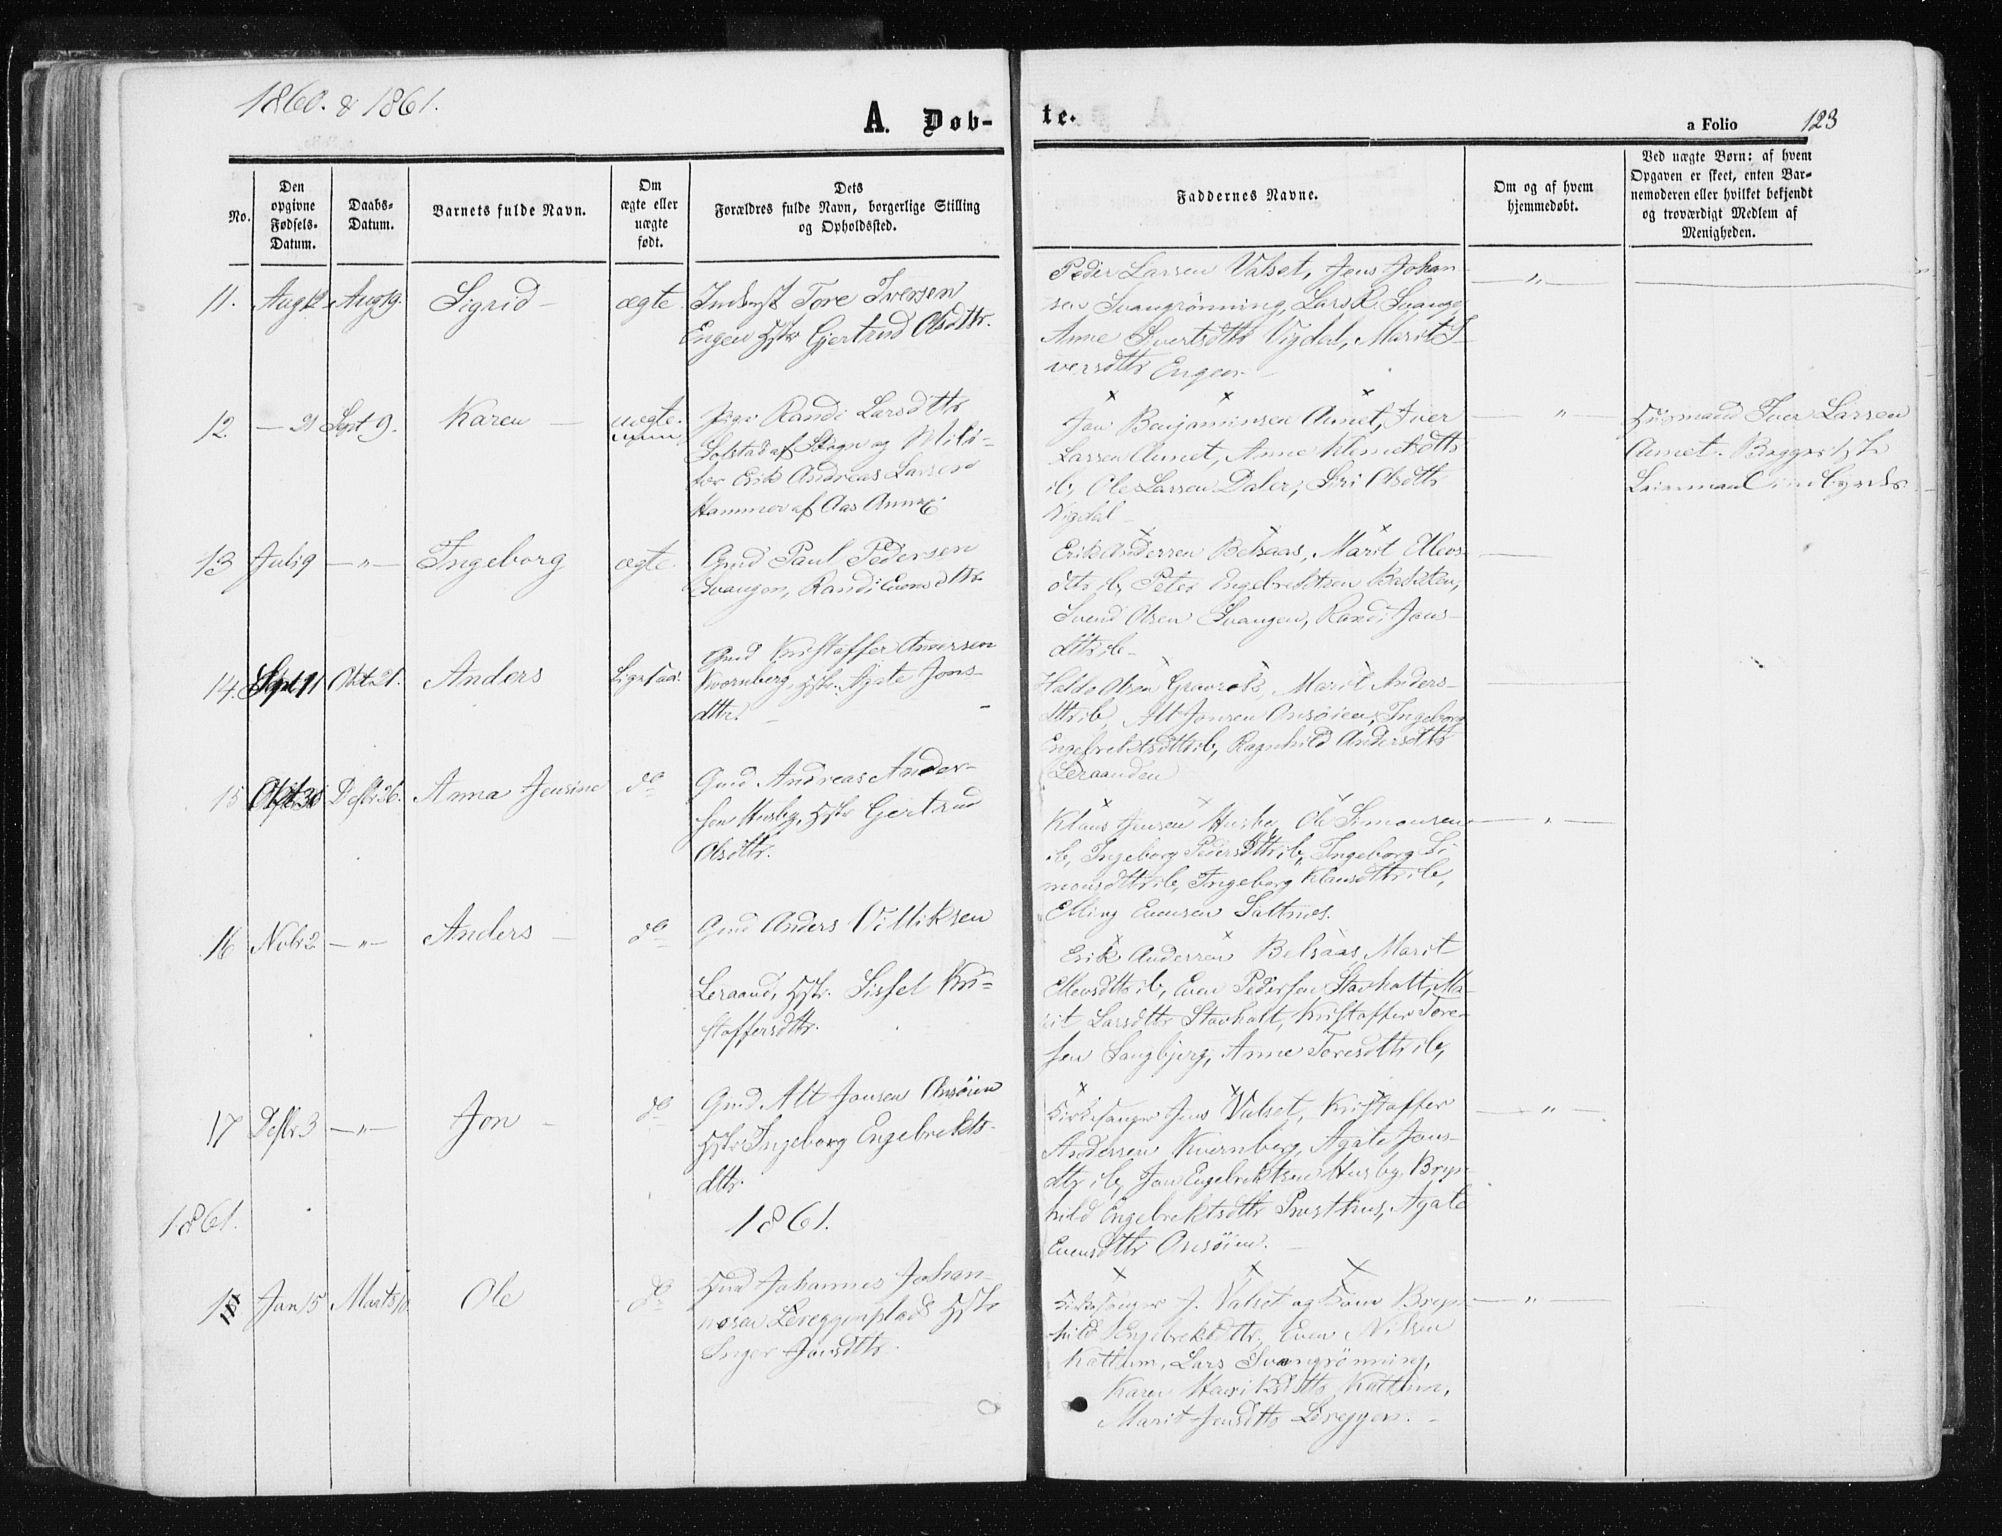 1860. & 1861.
A. Døb-
te.
a Folio 123
No.
Den
opgivne
Fødsels-
Datum.
Daabs-
Datum.
Barnets fulde Navn.
Om
ægte eller
uægte
født.
Dets
Forældres fulde Navn, borgerlige Stilling
og Opholdssted.
Faddernes Navne.
Om og af hvem
hjemmedøbt.
Ved uægte Børn: af hvem
Opgaven er skeet, enten Bar-
nemoderen eller hvilket bekjendt
og troværdigt Medlem af
Menigheden.
11. Aug 12 Aug 19. Sigrid — ægte. Inderst Tore Iversen
Engen Hstr Gjertrud Olsdttr.
Peder Larsen Valset, Jens Johan-
sen Svangrønning, Lars
Anne Sivertsdttr Vigdal, Marit I-
versdttr Engen —
— " —
12. — 21 Sept 9. Karen — uægte. Pige Randi Larsdttr
Solstad af Skogn og
Erik Andreas Larsen
Hammer af Aas
Jon Benjaminsen Aunet, Iver
Larsen Aunet, Anne
ib, Ole Larsen Daler, Siri Olsdttr
Vigdal —
— " —
Husmand Iver Larsen
Aunet.
13 Juli 9 — " — Ingeborg ægte. Gmd Paul Pedersen
Svangen, Randi Evensdttr
Erik Andersen Belsaas, Marit Ellevs-
dttr ib, Peter Engebrektsen
Svend Olsen Svangen, Randi Jons-
dttr ib —
14. Sept 11 Okt. 21. Anders Ligesaa. Gmd Kristaffer Andersen
Kvernberg, Hstr. Agate Jons-
dttr. —
Olsen Marit Anders-
dttr ib, Alt Jonsen Onsøien, Ingeborg
Engebrektsdttr ib, Ragnhild Andersdttr
Leraanden
15 Desbr 26. Anna Jensine do Gmd Andreas Ander-
sen Husby, Hstr Gertrud
Olsdttr.
Klaus Jensen Husby, Ole Simonsen
ib, Ingeborg Pedersdttr ib, Ingeborg Si-
monsdttr ib, Ingeborg Klausdttr ib,
Elling Evensen Saltnes.
— " —
16 Novbr 2 — " — Anders — do Gmd Anders Villiksen
Leraand, Hstr. Sissel Kri-
stoffersdttr.
Erik Andersen Belsaas, Marit
Ellevsdttr ib, Even Pedersen Stavholt, Ma-
rit Larsdttr Stavholt, Kristoffer Tore-
sen Langbjerg, Anne Toresdttr ib,
17 Desbr 3 — " — Jon — do Gmd Alt Jonsen Onsøien
Hstr Ingeborg Engebrekts-
dttr.
Kirkesanger Jens Valset, Kristoffer
Andersen Kvernberg, Agate Jons-
dttr ib, Jon Engebrektsen Husby, Bryn-
hild Engebrektsdttr Prusthus, Agate
Evensdttr Onsøien. —
— " —
1861. 1861.
1 Jan 15 Marts 10. Ole do Hmd Johannes Johan-
nesen Lereggenplads Hstr
Inger Jonsdttr.
Kirkesanger J. Valset og Kone Bryn-
hild Engebrektsdttr, Even Nilsen
Kattum, Lars Svangrønning,
Karen Henriksdttr Kattum,
Marit Jensdttr Lereggen. —
— " —